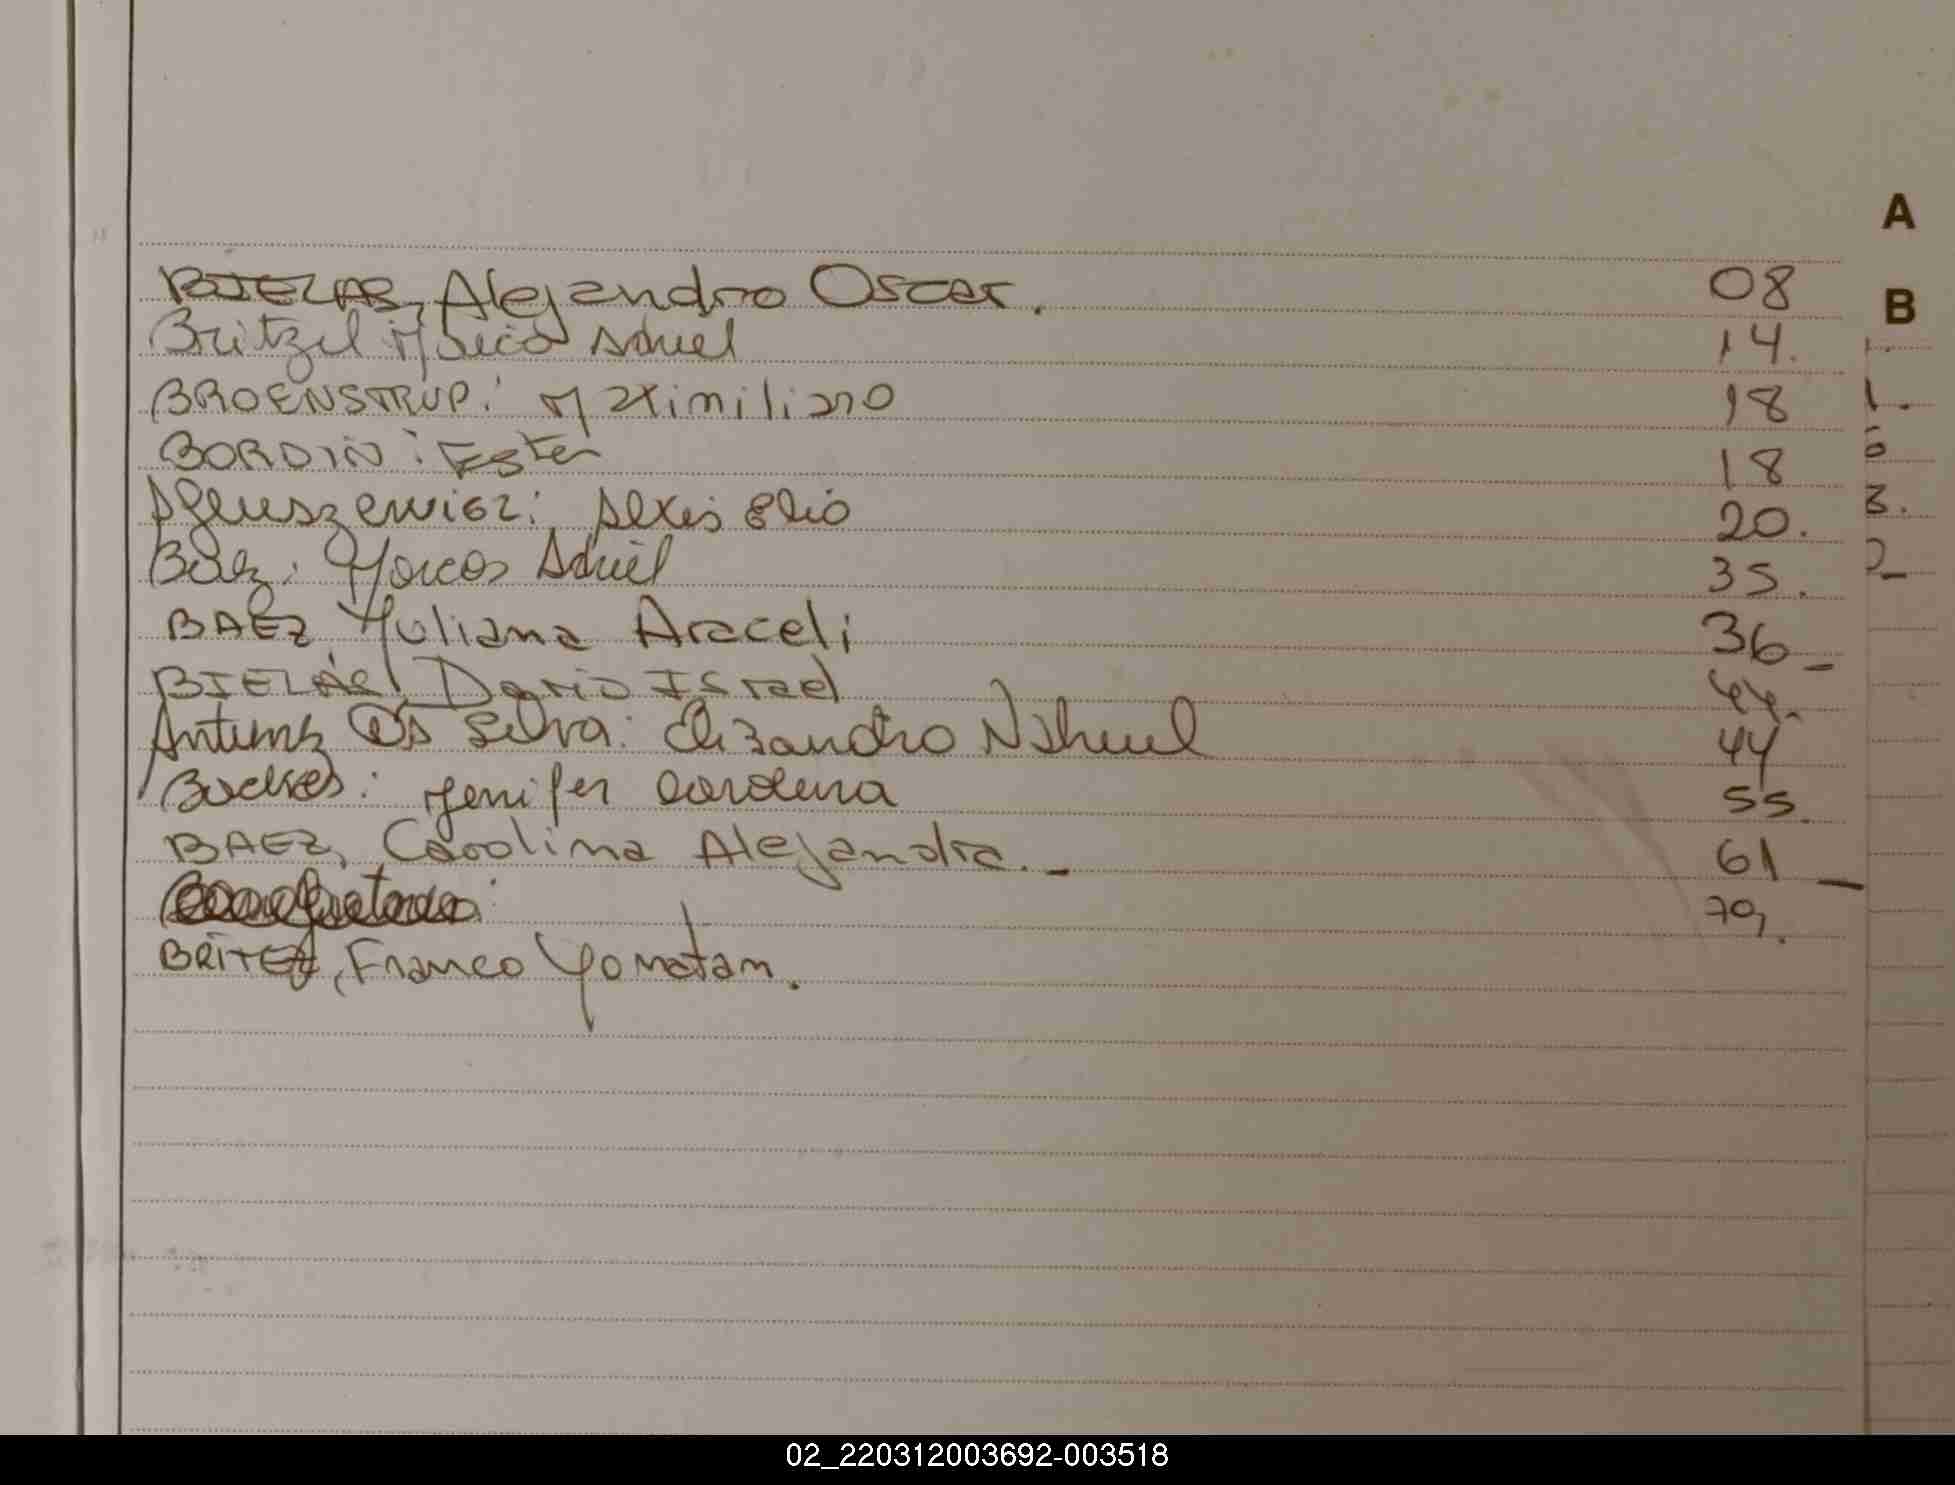 A
BIELAS, Alejandro Oscar. 08
B
Britzel Adriel 14.
BROENSTRUP: Maximiliano 18
BORDIN: Ester 18
Alexis Elio 20.
Baez: Marcos Adriel 35.
BAEZ Yuliana Araceli 36-
BIELAS, Dario Israel 44.
Antunez Da Silva: Elizandro Nahuel 44
Jenifer Carolina 55.
BAEZ, Carolina Alejandra.- 61-
BRITEZ, Franco Yonatan. 70,.
02_220312003692-003518